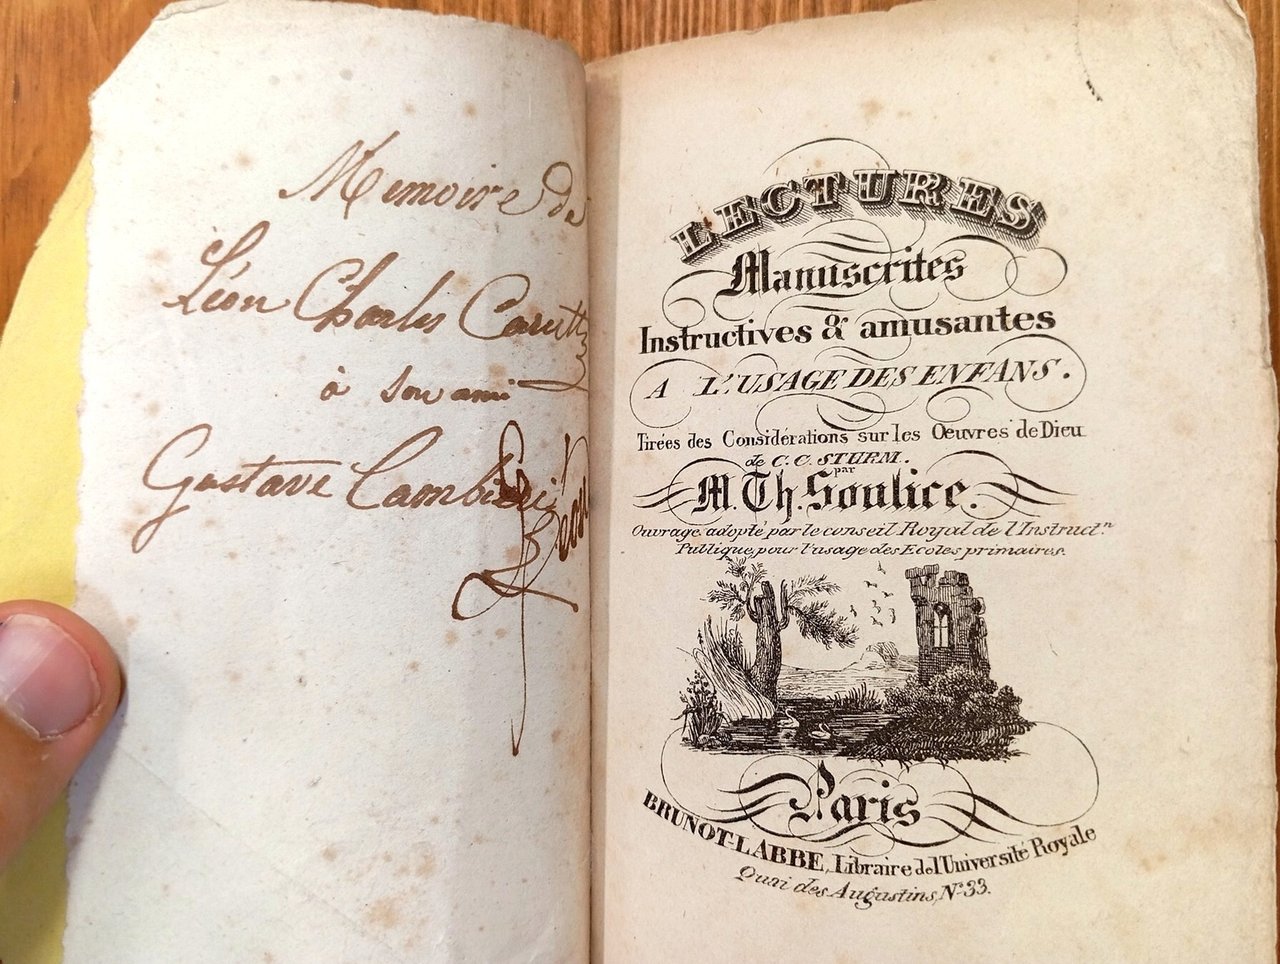 Memoire de
Léon Charles
à son ami
Gustave
LECTURES
Manuscrites
Instructives & amusantes
A L'USAGE DES ENFANS.
Tirées des Considérations sur les Oeuvres de Dieu
de C. C. STURM.
par
M. Th. Soulice.
Ouvrage adopté par le conseil Royal de l'Instruct.n
Publique, pour l'usage des Ecoles primaires.
Paris
BRUNOT-LABBE, Libraire de l'Université Royale
Quai des Augustins, N.o 33.